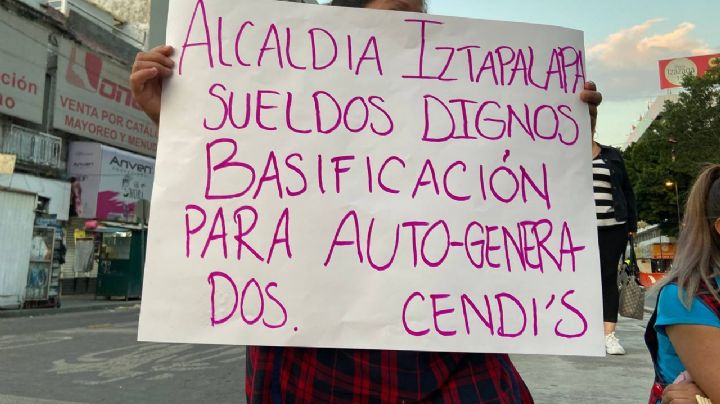 ALCALDIA IZTAPALAPA
SUELDOS DIGNOS
BASIFICACIÓN
PARA AUTO-GENERA-
DOS. CENDI'S
VENTA POR CATÁLOGO
MAYOREO Y MENUDEO